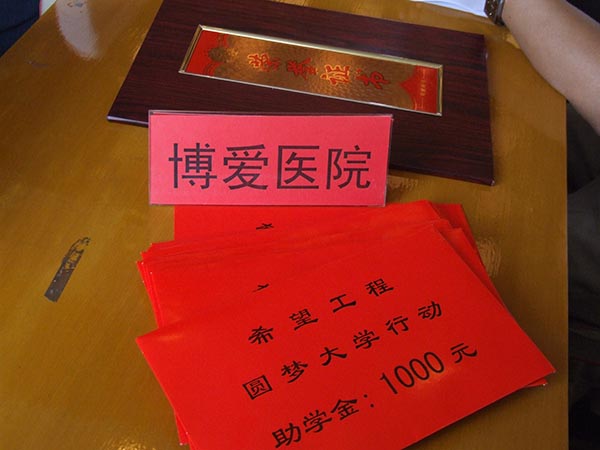 荣誉证书
博爱医院
希望工程
圆梦大学行动
助学金：1000元